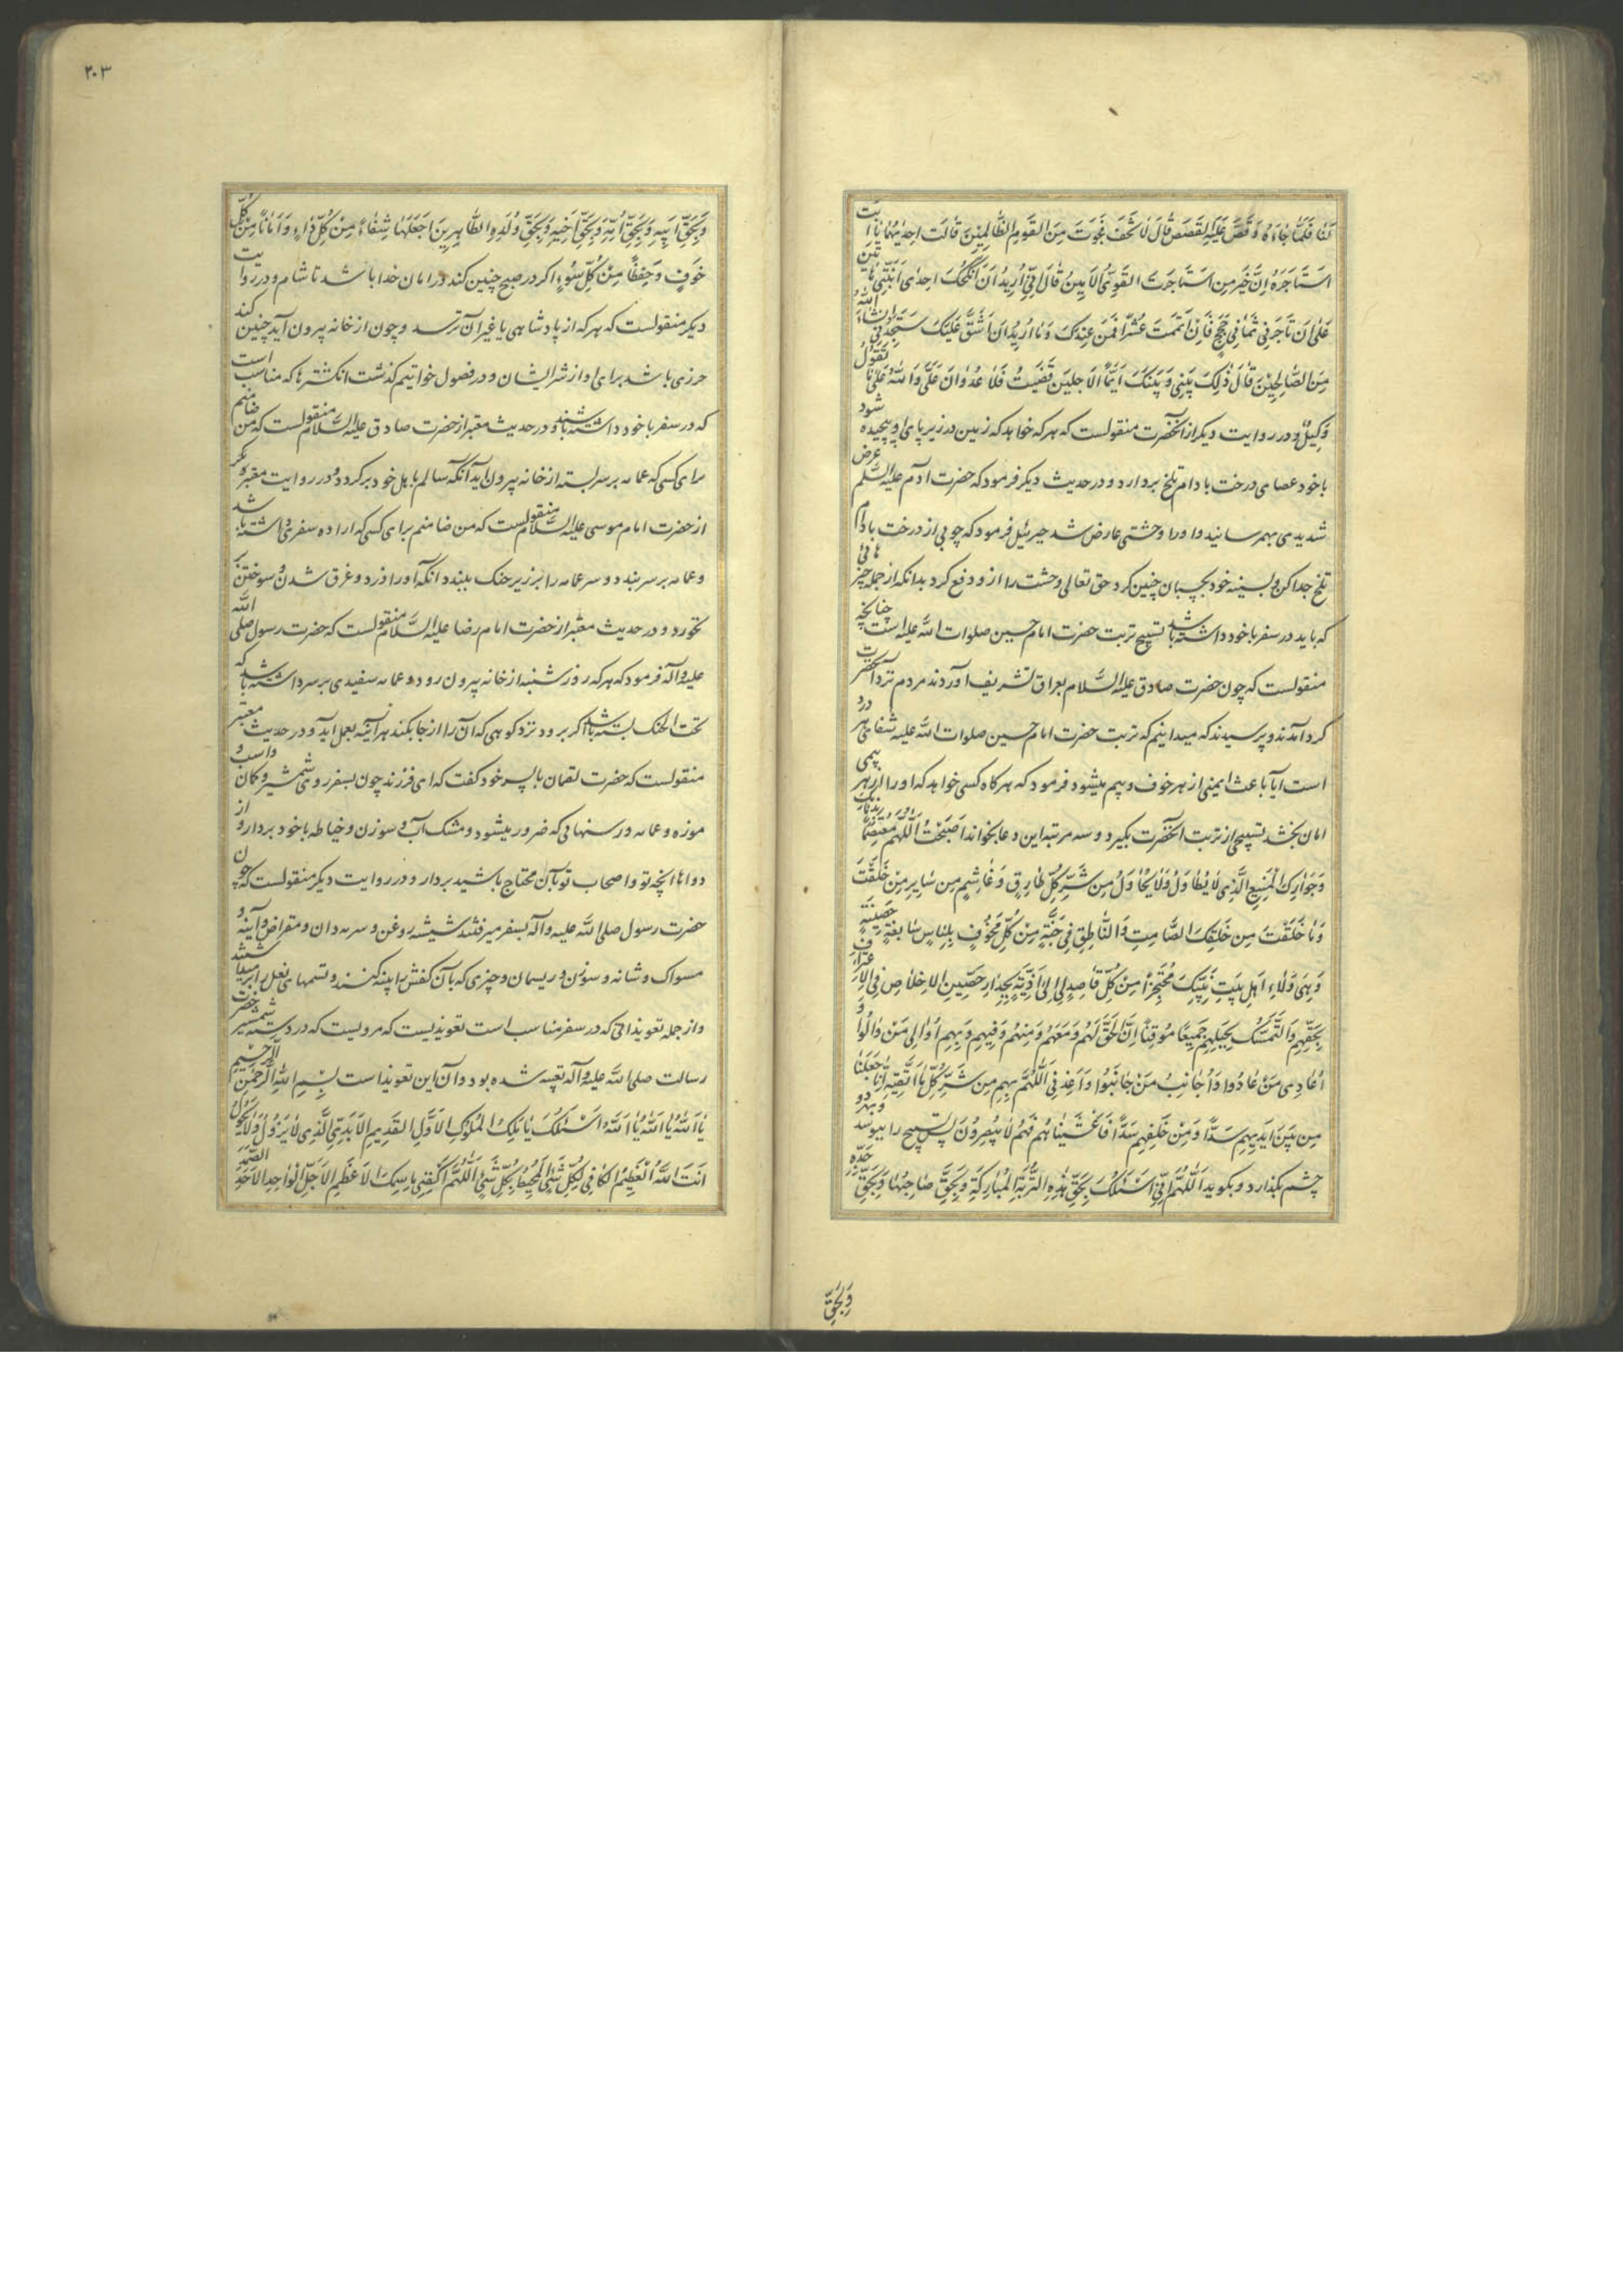 لَنا فَلَمّا جاءَهُ وَ قَصَّ عَلَیْهِ القَصَصَ قالَ لا تَخَفْ نَجَوْتَ مِنَ القَومِ الظّالِمینَ قالَت اِحدیٰهُما یا اَبَتِ
استَأجِرهُ اِنَّ خَیرَ مَنِ استَأجَرتَ القَوِیُّ الاَمینُ قالَ اِنّی اُریدُ اَن اُنکِحَکَ اِحدَی ابنَتَیَّ هاتَینِ
عَلیٰ اَن تَأجُرَنی ثَمانِیَ حِجَجٍ فَاِن اَتمَمتَ عَشراً فَمِن عِندِکَ وَ ما اُریدُ اَن اَشُقَّ عَلَیکَ سَتَجِدُنی اِن شاءَ اللّهُ
مِنَ الصّالِحینَ قالَ ذٰلِکَ بَینی وَ بَینَکَ اَیَّمَا الاَجَلَینِ قَضَیتُ فَلا عُدوانَ عَلَیَّ وَ اللّهُ عَلیٰ ما نَقولُ
وَکیلٌ و در روایت دیکر از آنحضرت منقولست که هر که خواهد که زمین در زیر پای او پیچیده شود
باخود عصای درخت بادام تلخ بردارد و در حدیث دیکر فرمود که حضرت آدم علیه السلم مرض
شدیدی بهم رسانید و او را وحشتی عارض شد جبرئیل فرمود که چوبی از درخت بادام
تلخ جدا کن و بسینه خود بچسبان چنین کرد حق تعالی وحشت را از و دفع کرد بدانکه از جمله چیزهائی
که باید در سفر باخود داشته باشد تسبیح تربت حضرت امام حسین صلوات الله علیه است چنانچه
منقولست که چون حضرت صادق علیه السلام بعراق تشریف آوردند مردم نزد آنحضرت
کرد آمدند و پرسیدند که میدانیم که تربت حضرت امام حسین صلوات الله علیه شفای هر درد
است آیا باعث ایمنی از هر خوف و بیم میشود فرمود که هر کاه کسی خواهد که او را از هر بیمی
امان بخشد تسبیحی از تربت آنحضرت بکیرد و سه مرتبه این دعا بخواند اَصبَحتُ اَللّهُمَّ مُعتَصِماً بِذِمامِکَ
وَ جِوارِکَ المَنیعِ الَّذی لا یُطاوَلُ وَ لا یُحاوَلُ مِن شَرِّ کُلِّ طارِقٍ وَ غاشِمٍ مِن سائِرِ مَن خَلَقتَ
وَ ما خَلَقتَ مِن خَلقِکَ الصّامِتِ وَ النّاطِقِ فی جُنَّةٍ مِن کُلِّ مَخُوفٍ بِلِباسٍ سابِغَةٍ حَصینَةٍ
وَ هِیَ وَلاءِ اَهلِ بَیتِ نَبِیِّکَ مُحتَجِزاً مِن کُلِّ قاصِدٍ لی اِلیٰ اَذِیَّةٍ بِجِدارٍ حَصینِ الاِخلاصِ فِی الاِعتِرافِ
بِحَقِّهِم وَ التَّمَسُّکِ بِحَبلِهِم جَمیعاً مُوقِناً اَنَّ الحَقَّ لَهُم وَ مَعَهُم وَ مِنهُم وَ فیهِم وَ بِهِم اُوالی مَن والَوا وَ
اُعادی مَن عادَوا وَ اُجانِبُ مَن جانَبُوا وَ اَعِذنی اَللّهُمَّ بِهِم مِن شَرِّ کُلِّ ما اَتَّقیهِ اِنّا جَعَلنا
مِن بَینِ اَیدیهِم سَدّاً وَ مِن خَلفِهِم سَدّاً فَاَغشَیناهُم فَهُم لا یُبصِرُونَ پس تسبیح را ببوسد و بهر دو
چشم بکذارد و بکوید اَللّهُمَّ اِنّی اَسئَلُکَ بِحَقِّ هٰذِهِ التُّربَةِ المُبارَکَةِ وَ بِحَقِّ صاحِبِها وَ بِحَقِّ جَدِّهِ
وَ بِحَقِّ
٢٠٣
وَ بِحَقِّ اَبیهِ وَ بِحَقِّ اُمِّهِ وَ بِحَقِّ اَخیهِ وَ بِحَقِّ وُلدِهِ الطّاهِرینَ اجعَلها شِفاءً مِن کُلِّ داءٍ وَ اَماناً مِن کُلِّ
خَوفٍ وَ حِفظاً مِن کُلِّ سُوءٍ اکر در صبح چنین کند در امان خدا باشد تا شام و در روایت
دیکر منقولست که هر که از پادشاهی یا غیر آن ترسد و چون از خانه بیرون آید چنین کند
حرزی باشد برای او از شر ایشان و در فصول خواتیم کذشت انکشترها که مناسب است
که در سفر باخود داشته باشند و در حدیث معتبر از حضرت صادق علیه السلام منقولست که من ضامنم
برای کسی که عمامه بر سر بسته از خانه بیرون آید آنکه سالم باهل خود برکردد و در روایت معتبر دیکر
از حضرت امام موسی علیه السلام منقولست که من ضامنم برای کسی که اراده سفری داشته باشد
و عمامه بر سر بندد و سر عمامه را بر زیر حنک ببندد انکه او را دزد و غرق شدن و سوختن
نخورد و در حدیث معتبر از حضرت امام رضا علیه السلام منقولست که حضرت رسول صلی الله
علیه وآله فرمود که هر که روز شنبه از خانه بیرون رود و عمامه سفیدی بر سر داشته باشد که
تحت الحنک بسته باشد اکر برود نزد کوهی که آن را از جا بکند هر آینه بعمل آید و در حدیث معتبر
منقولست که حضرت لقمان با پسر خود کفت که ای فرزند چون بسفر روی شمشیر و کمان و اسب و
موزه و عمامه و رسنهائی که ضرور میشود و مشک آب و سوزن و خیاطه باخود بردار و از
دواها انچه تو و اصحاب تو بآن محتاج باشید بردار و در روایت دیکر منقولست که چون
حضرت رسول صلی الله علیه وآله بسفر میرفتند شیشه روغن و سرمه دان و مقراض و آینه و
مسواک و شانه و سوزن و ریسمان و چیزی که بآن کفش را پینه کنند و تسمهای نعل
و از جمله تعویذاتی که در سفر مناسب است تعویذیست که مرویست که در دسته شمشیر حضرت
رسالت صلی الله علیه وآله تعبیه شده بود و آن این تعویذ است بِسمِ اللهِ الرَّحمٰنِ الرَّحیمِ
یا اَللّهُ یا اَللّهُ یا اَللّهُ اَسئَلُکَ یا مَلِکَ المُلُوکِ الاَوَّلَ القَدیمَ الاَبَدِیَّ الَّذی لا یَزُولُ وَ لا یَحُولُ
اَنتَ اللّهُ العَظیمُ الکافی لِکُلِّ شَیءٍ المُحیطُ بِکُلِّ شَیءٍ اَللّهُمَّ اکفِنی بِاسمِکَ الاَعظَمِ الاَجَلِّ الواحِدِ الاَحَدِ الصَّمَدِ